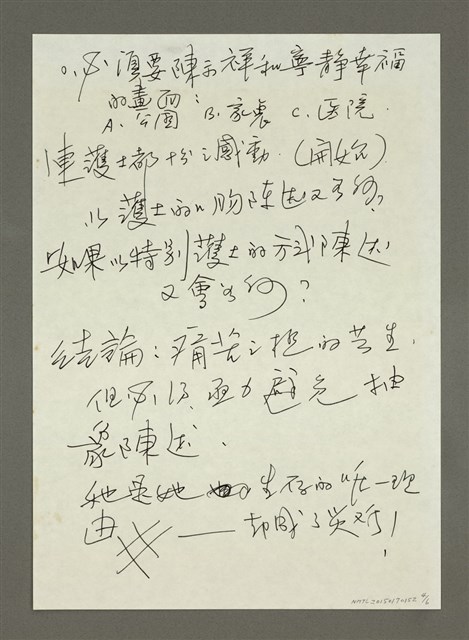 ○. 必須要陳示祥和寧靜幸福
的畫面：
A. 公園 B. 家裏 C. 医院.
連護士都十分之感動.（開始）
以護士的口吻陳述又如何?
如果以特別護士的方式陳述
又會如何?
結論：痛苦之極的苦生.
但必須 極力避免 抽
象陳述.
她是她 生存的"唯一理
由 —— 却成了災難!
NMTL20150170152 4/6